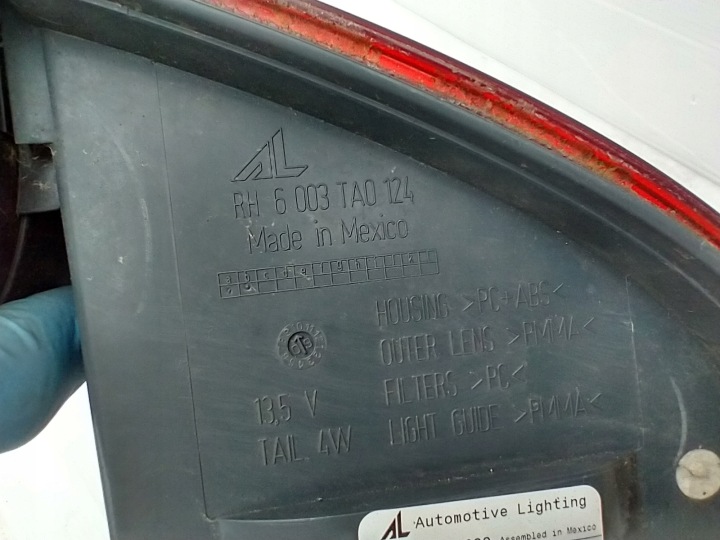 AL
RH 6 003 TAO 124
Made in Mexico
HOUSING >PC+ABS<
OUTER LENS >PMMA<
FILTERS >PC<
LIGHT GUIDE >PMMA<
13,5 V
TAIL 4W
AL Automotive Lighting
Assembled in Mexico